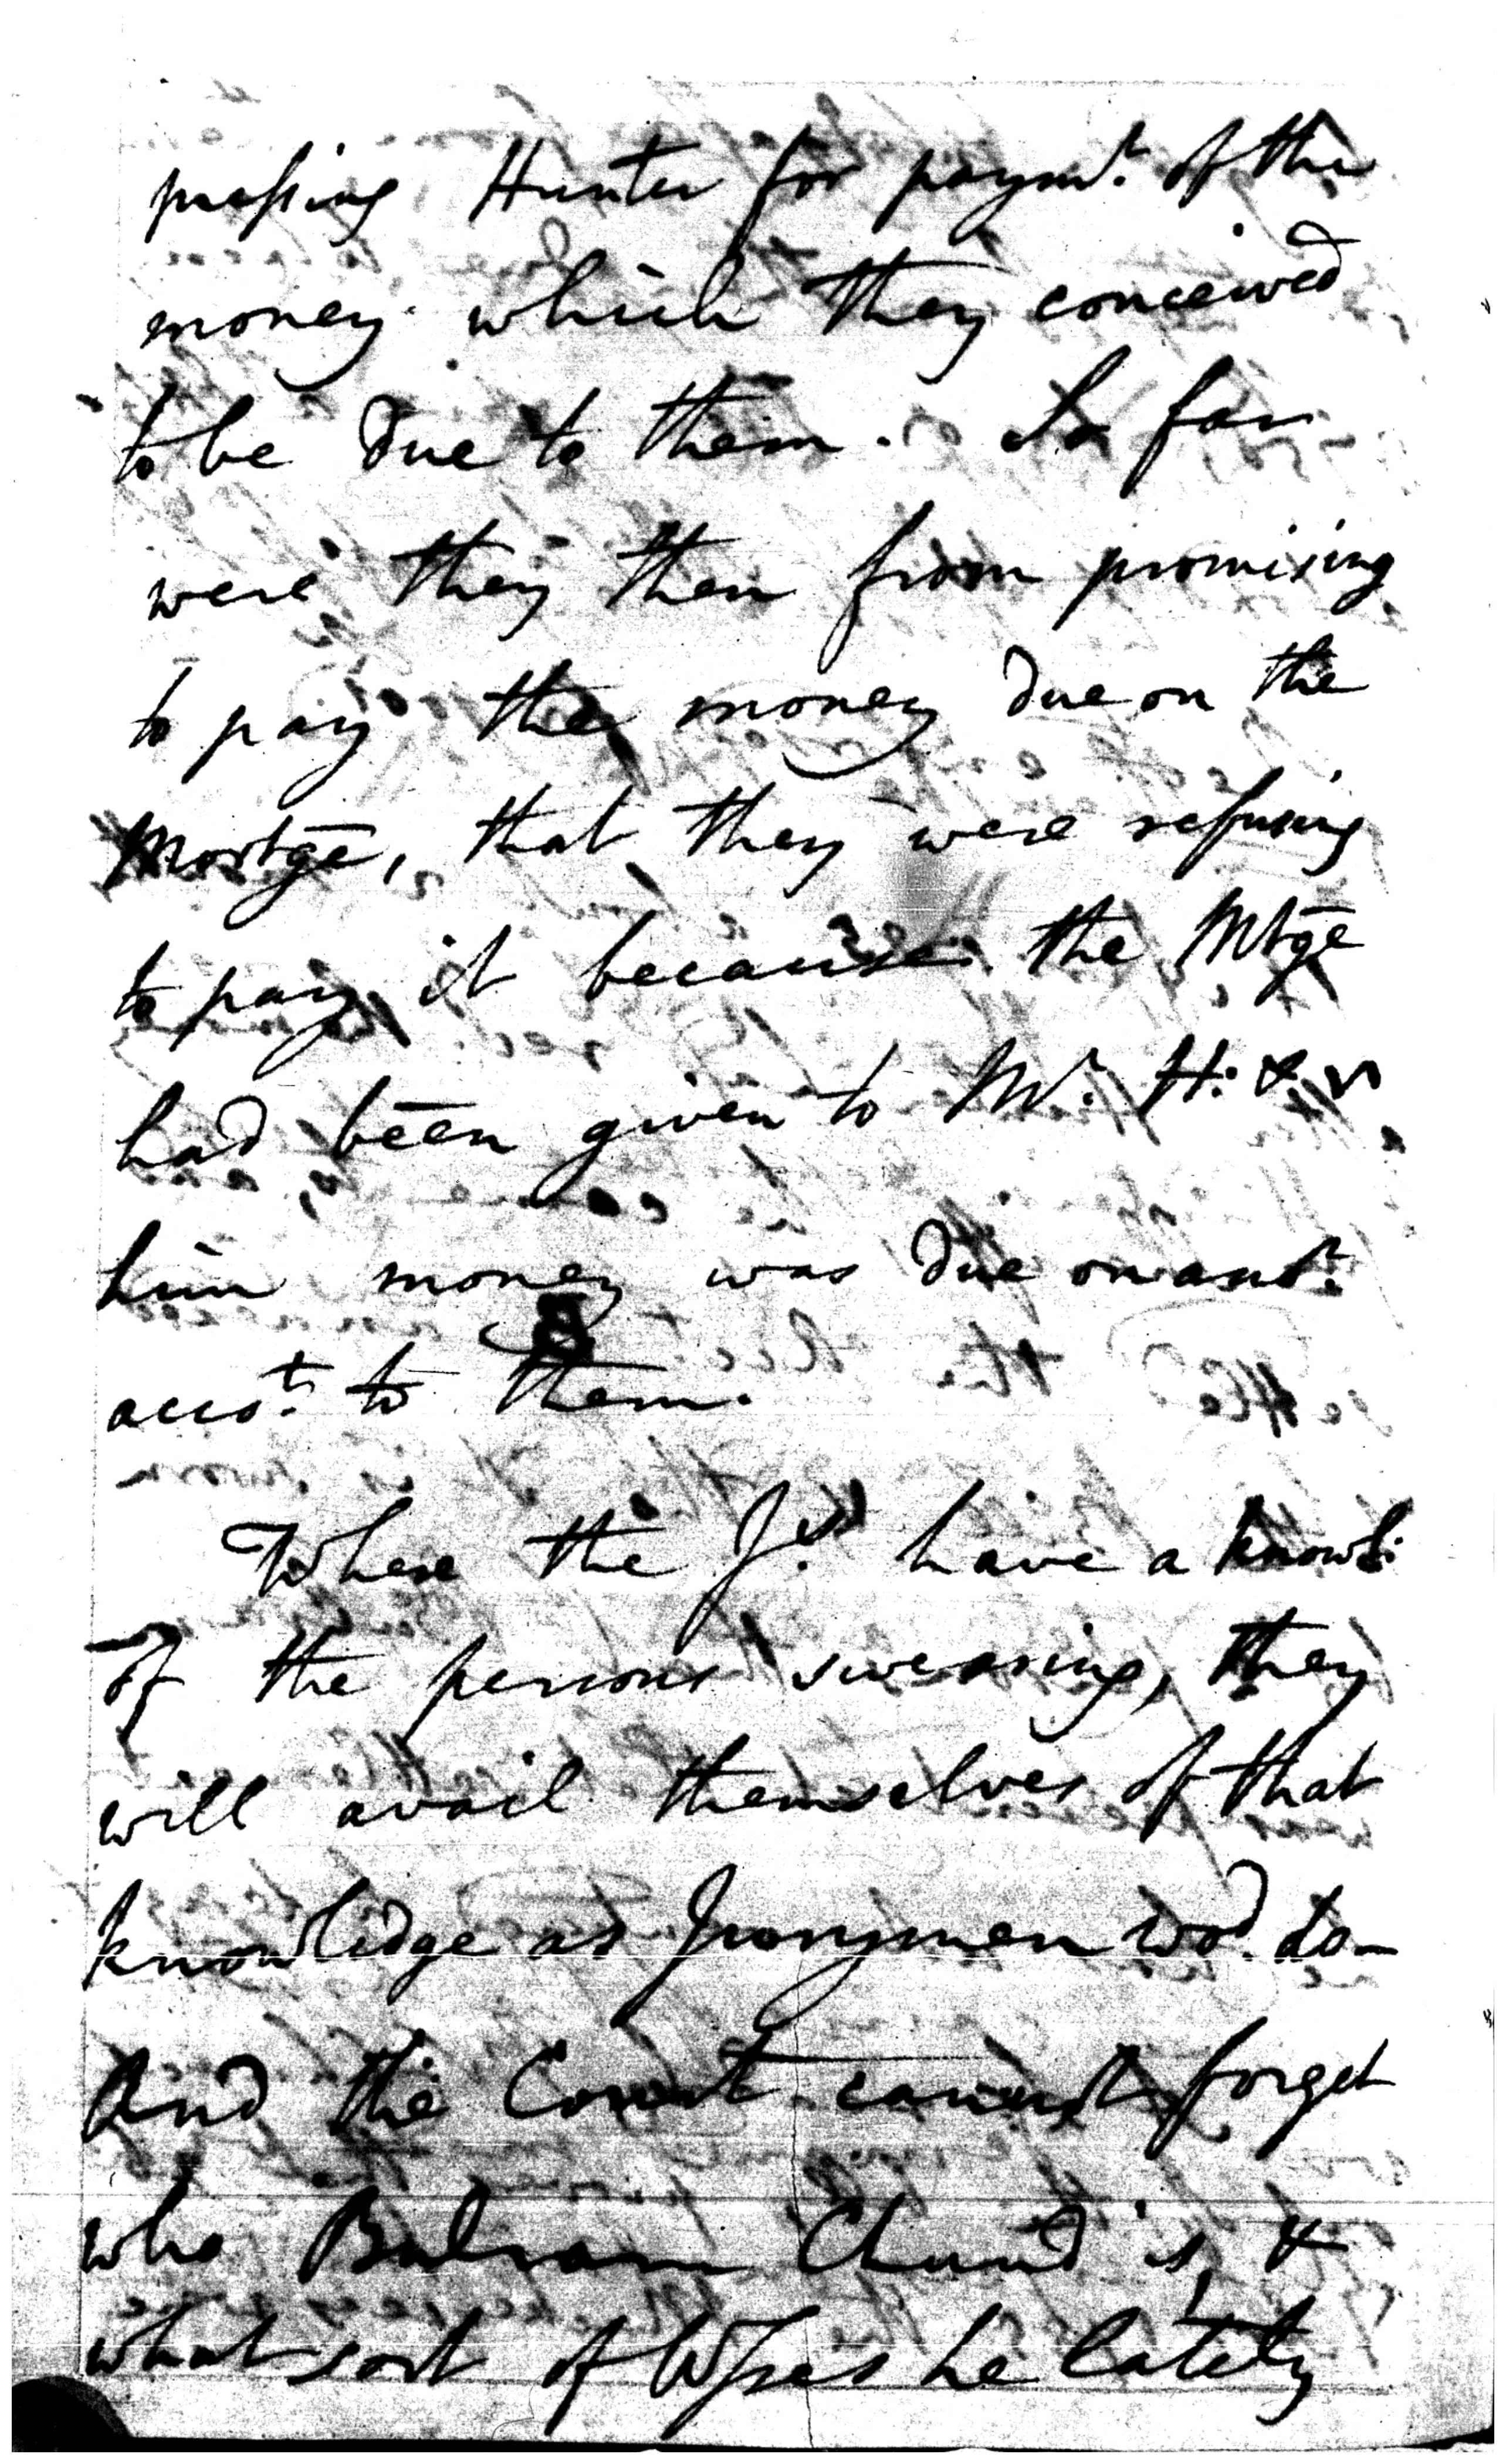 pressing Hunter for paymt. of the
money which they conceived
to be due to them. So far
were they then from promising
to pay the money due on the
Mortge, that they were refusing
to pay it because the Mtge
had been given to Mr. H. &
him money was due on
acco.t to them.
Where the J.s have a knowl:
of the persons swearing, they
will avail themselves of that
knowledge as Jurymen wod. do—
And the Court cannot forget
who Bulram Chund is, &
what sort of Wsses he lately